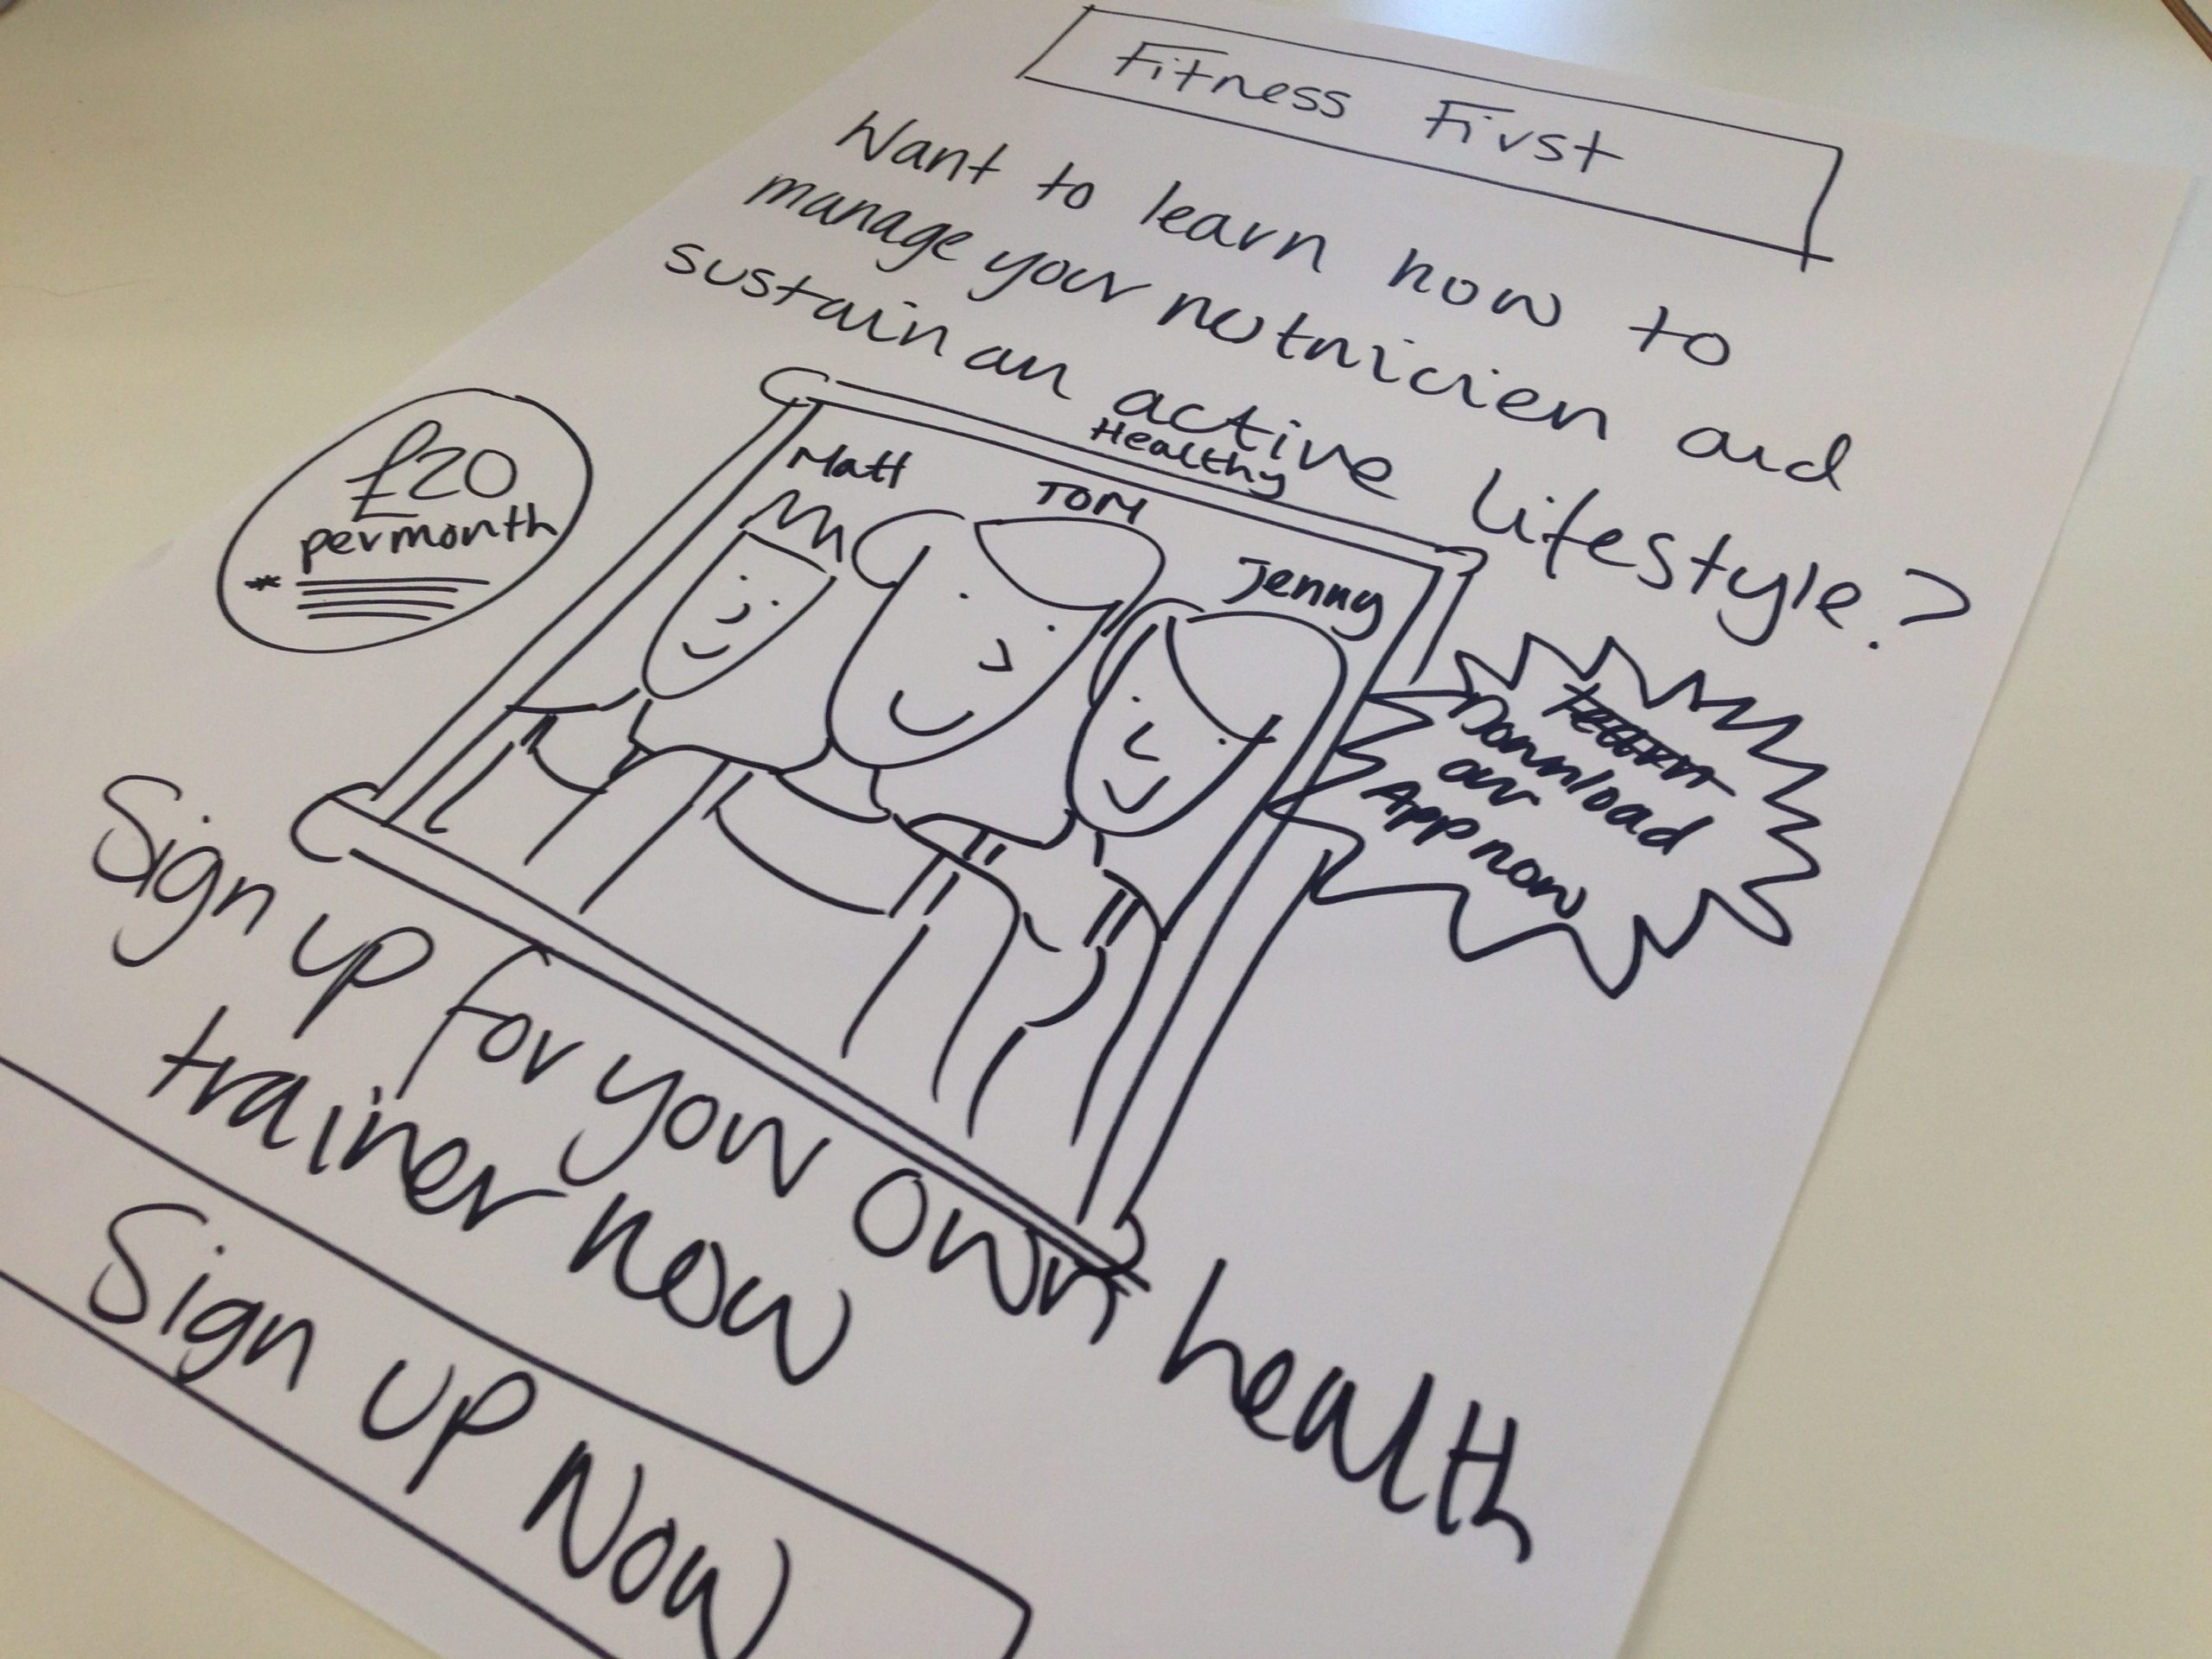 Fitness First
Want to learn how to
manage your nutricien and
sustain an active lifestyle?
Healthy
£20
per month
*
Matt
TOM
Jenny
Download
our
App now
Sign up for your own health
trainer now
Sign up Now